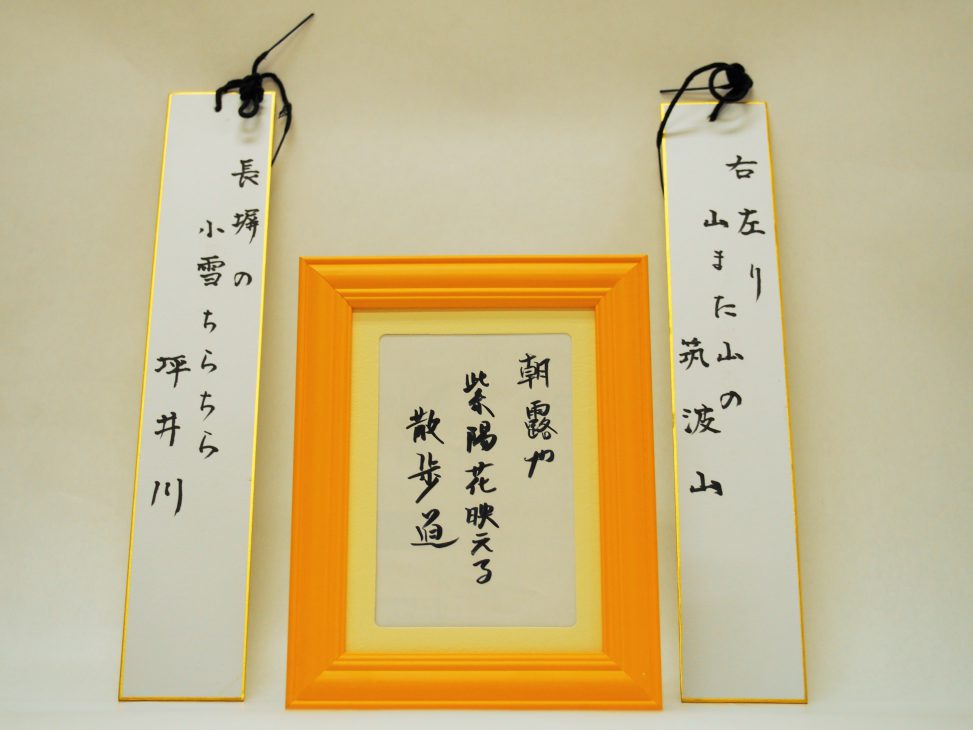 右左り
山また山の
筑波山
朝露や
紫陽花映える
散歩道
長塀の
小雪ちらちら
坪井川